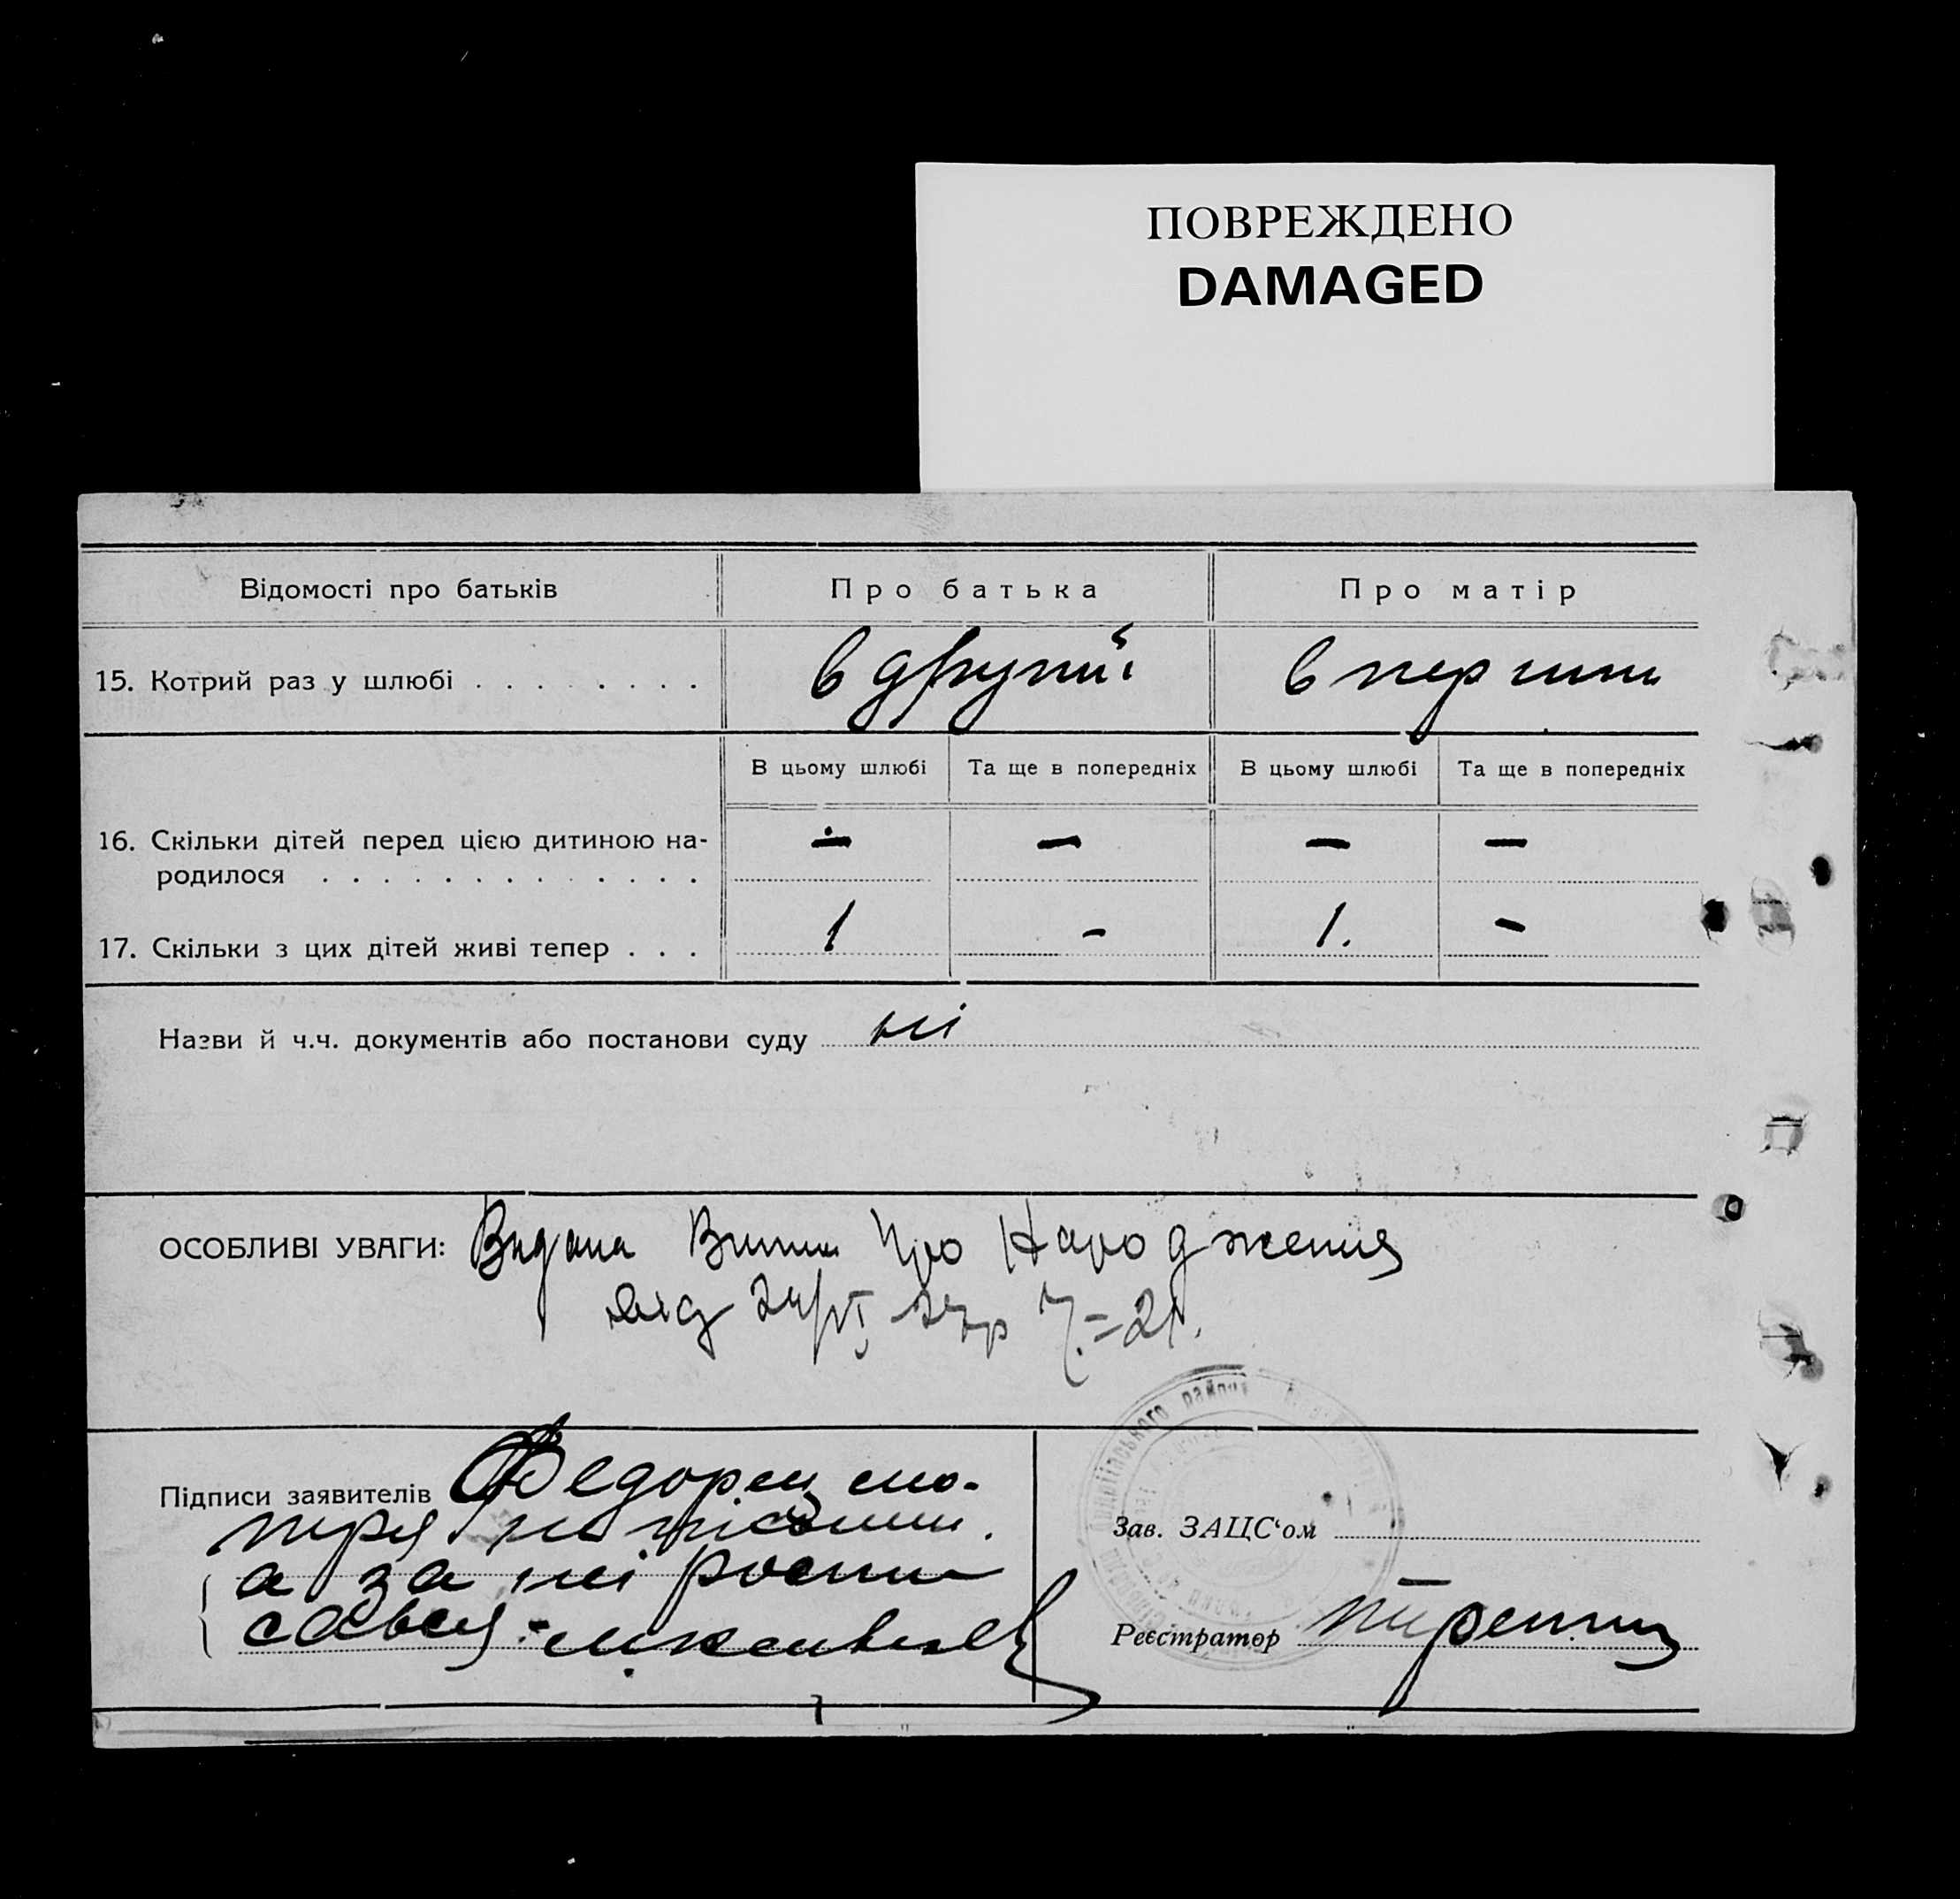 ПОВРЕЖДЕНО
DAMAGED
Відомості про батьків Про батька Про матір
15. Котрий раз у шлюбі . . . . . . . . в другий в перший
В цьому шлюбі Та ще в попередніх В цьому шлюбі Та ще в попередніх
16. Скільки дітей перед цією дитиною на- — — — —
родилося . . . . . . . . . . . . .
17. Скільки з цих дітей живі тепер . . . 1 - 1. -
Назви й ч.ч. документів або постанови суду ні
ОСОБЛИВІ УВАГИ: Видана про Народження
від 24/VI 7.=21.
Підписи заявителів Федорец
а за роспи
сався
Зав. ЗАЦС‘ом
Реєстратор
району